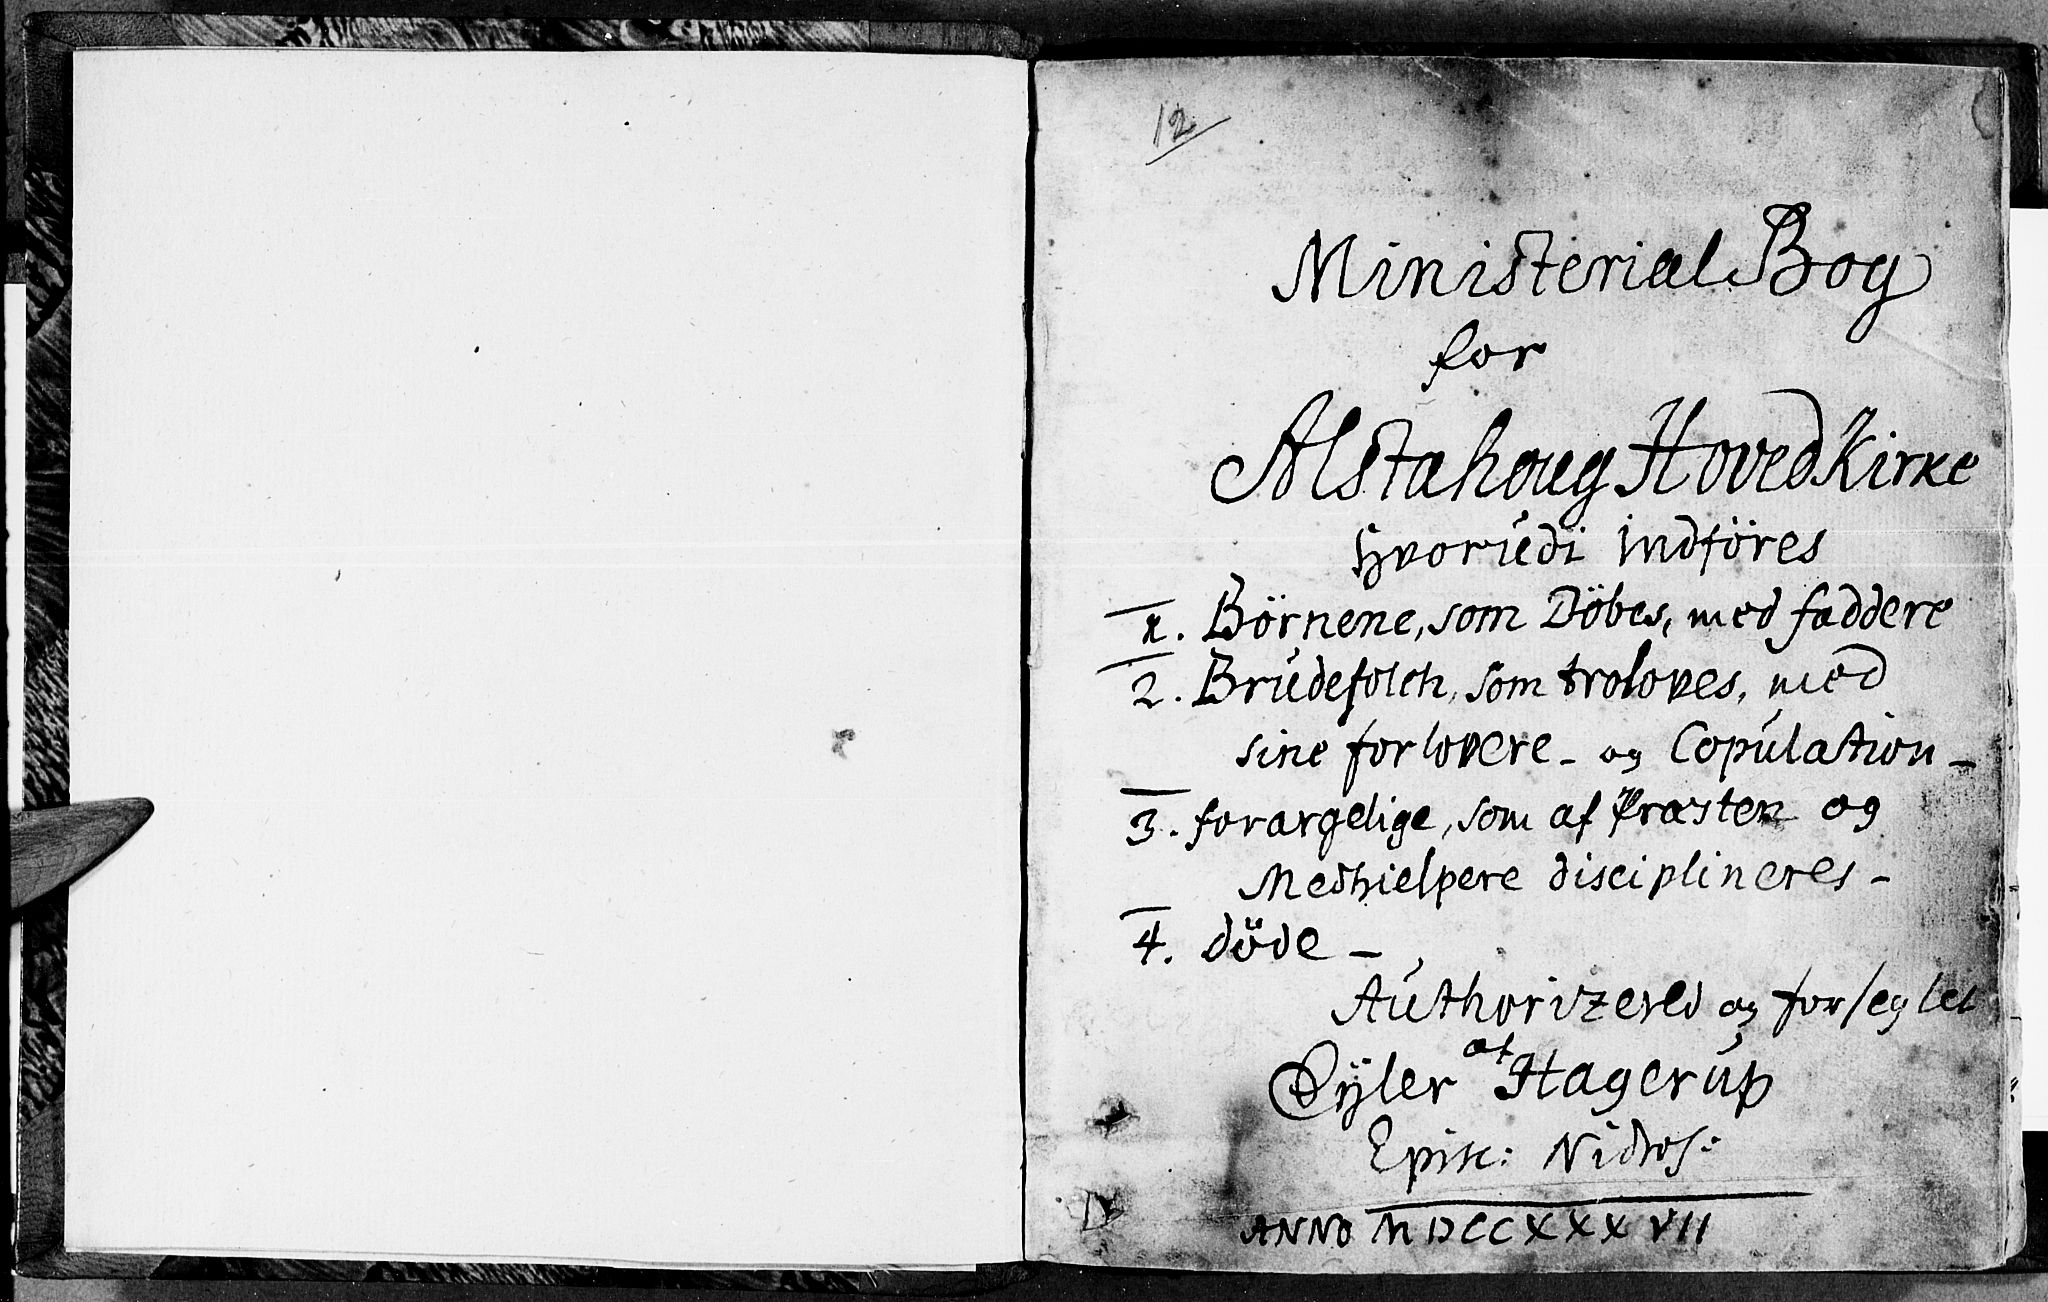 12
Ministerial Bog
for
Alstahoug HovedKirke
Hvorúdi indföres
1. Börnene, som Döbes, med faddere
2. Brúdefolch, som troloves, med
sine forlovere - og Copúlation -
3. forargelige, som af Præsten og
Medhielpere disciplineres -
4. döde -
Aúthorizered og forseglet
af
Eÿler Hagerúp
Episc: Nidros:
ANNO MDCCXXXVII